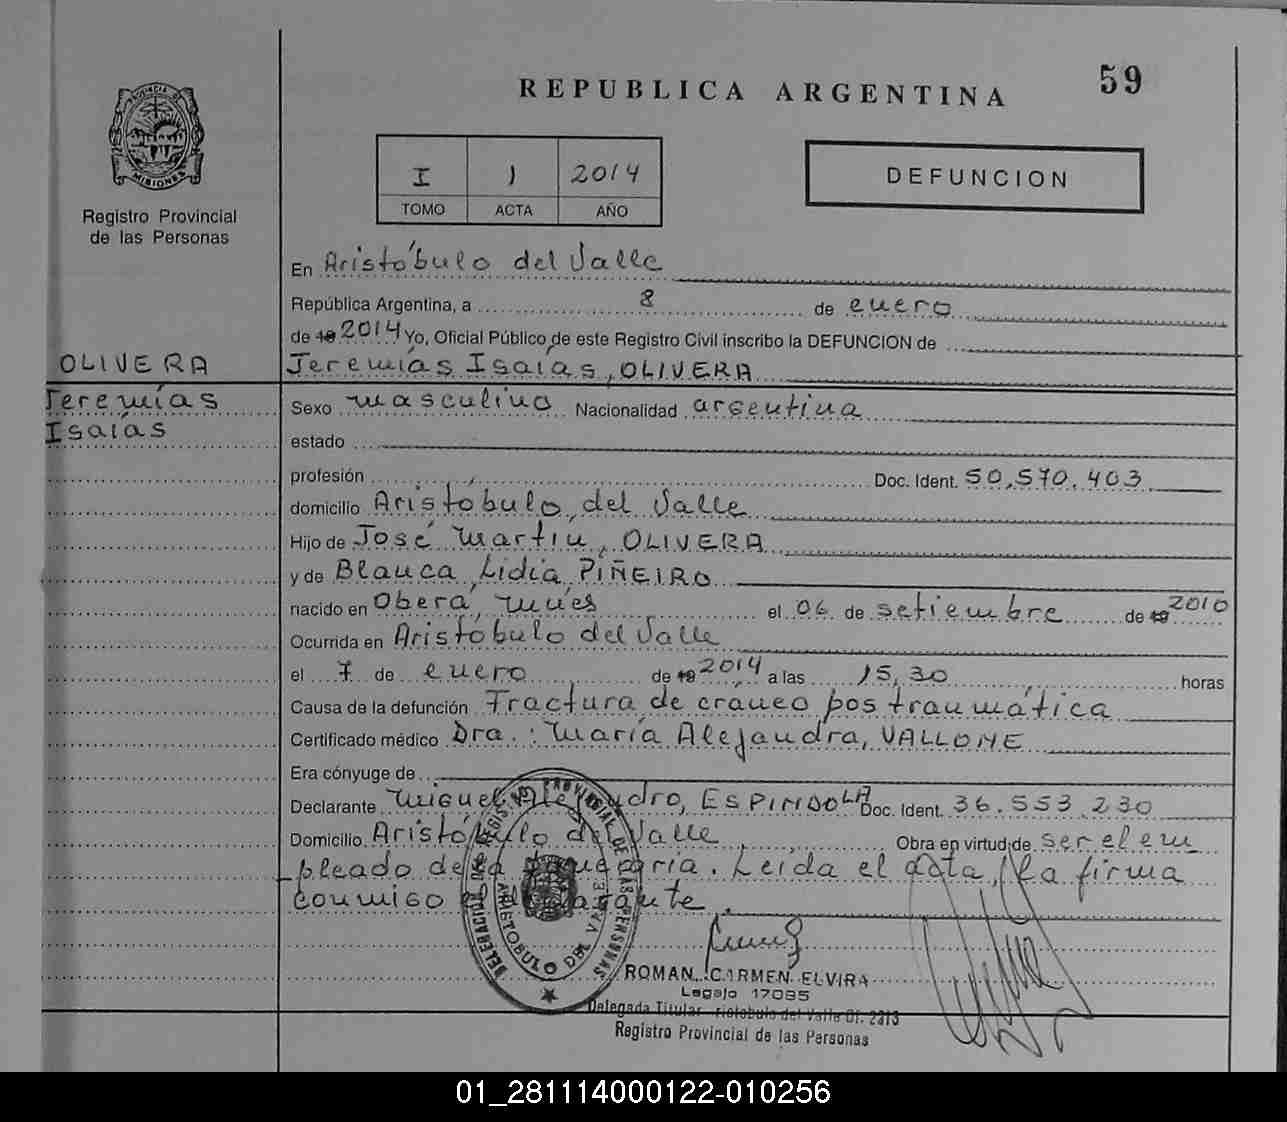 REPUBLICA ARGENTINA
59
PROVINCIA DE MISIONES
Registro Provincial
de las Personas
I 1 2014
TOMO ACTA AÑO
DEFUNCION
En Aristóbulo del Valle
República Argentina, a 8 de enero
de 19 2014 Yo, Oficial Público de este Registro Civil inscribo la DEFUNCION de
OLIVERA
Jeremías Isaías, OLIVERA
Jeremías
Isaías
Sexo masculino Nacionalidad argentina
estado
profesión Doc. Ident. 50.570.403
domicilio Aristóbulo del Valle
Hijo de José Martin, OLIVERA
y de Blanca Lidia PIÑEIRO
nacido en Oberá, Mnes el 06 de setiembre de 19 2010
Ocurrida en Aristóbulo del Valle
el 7 de enero de 19 2014 a las 15,30 horas
Causa de la defunción Fractura de cráneo pos traumática
Certificado médico Dra.: María Alejandra, VALLONE
Era cónyuge de
Declarante Miguel Alejandro, ESPINDOLA Doc. Ident. 36.553.230
Domicilio Aristóbulo del Valle Obra en virtud de ser el em
pleado de la funeraria. Leída el acta, la firma
conmigo el declarante.
DELEGACIÓN DEL REGISTRO PROVINCIAL DE LAS PERSONAS
ARISTOBULO DEL VALLE
ROMAN CARMEN ELVIRA
Legajo 17095
Delegada Titular Aristobulo del Valle Of. 2313
Registro Provincial de las Personas
01_281114000122-010256